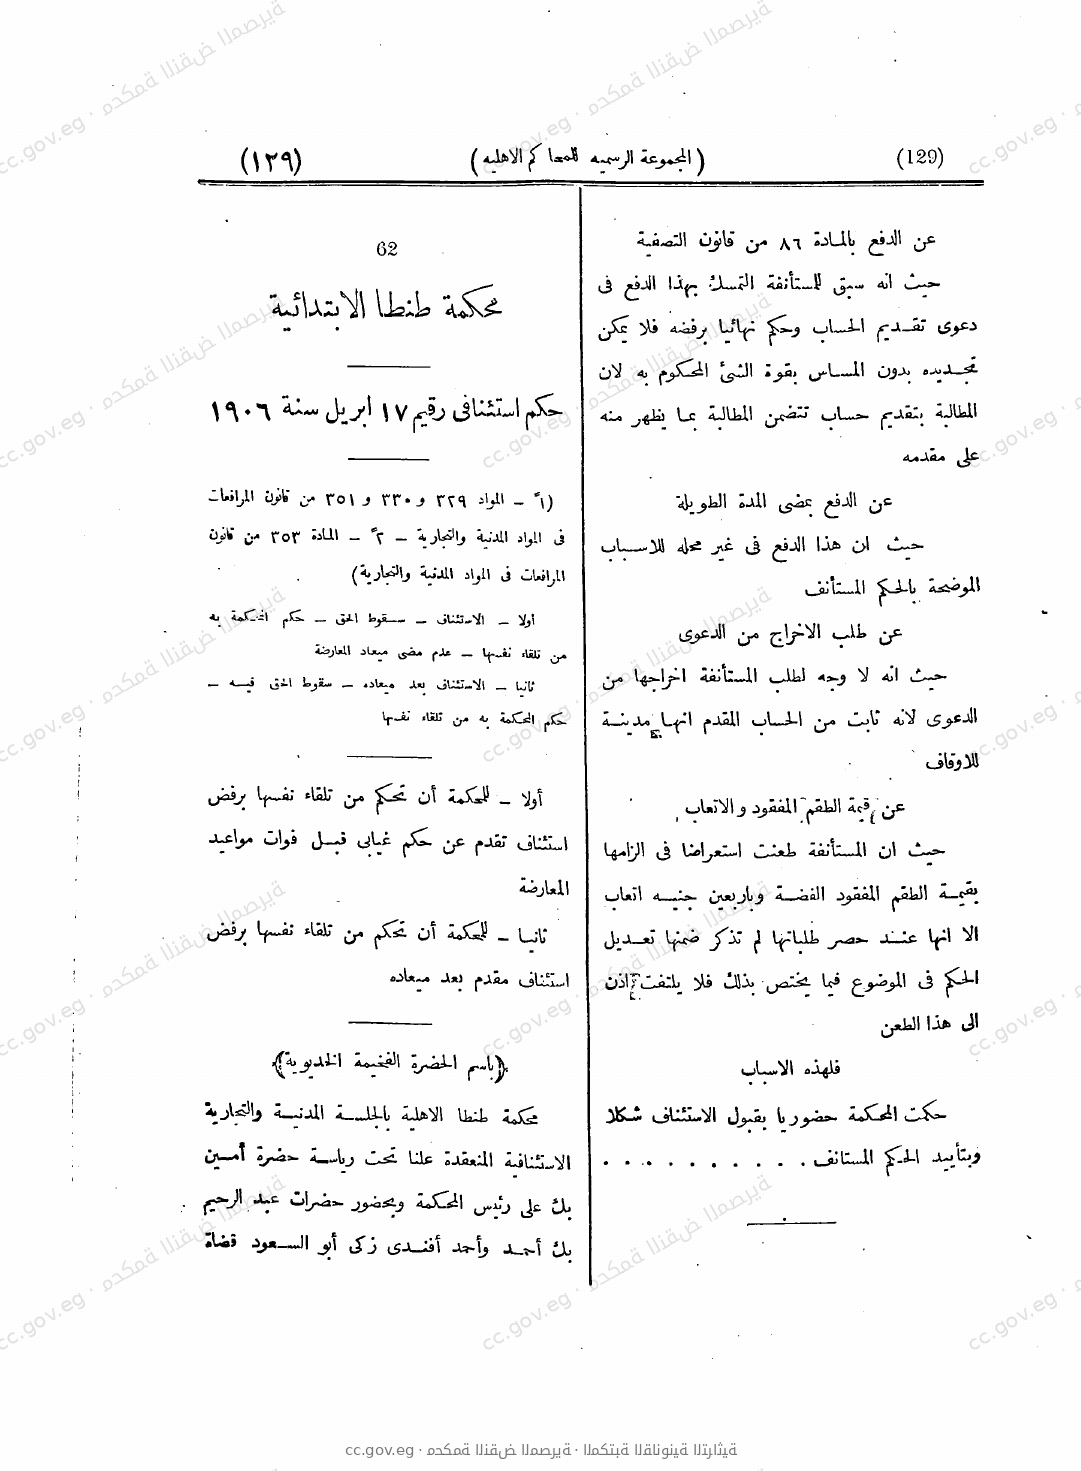 (129)
(المجموعة الرسميه للمحاكم الاهليه)
(١٢٩)
عن الدفع بالمادة ٨٦ من قانون التصفية
حيث انه سبق للمستأنفة التمسك بهذا الدفع فى
دعوى تقديم الحساب وحكم نهائيا برفضه فلا يمكن
تجديده بدون المساس بقوة الشئ المحكوم به لان
المطالبة بتقديم حساب تتضمن المطالبة بما يظهر منه
على مقدمه
عن الدفع بمضى المدة الطويلة
حيث ان هذا الدفع فى غير محله للاسباب
الموضحة بالحكم المستأنف
عن طلب الاخراج من الدعوى
حيث انه لا وجه لطلب المستأنفة اخراجها من
الدعوى لانه ثابت من الحساب المقدم انها مدينة
للاوقاف
عن قيمة الطقم المفقود والاتعاب
حيث ان المستأنفة طعنت استعراضا فى الزامها
بقيمة الطقم المفقود الفضة وباربعين جنيه اتعاب
الا انها عند حصر طلباتها لم تذكر ضمنها تعديل
الحكم فى الموضوع فيما يختص بذلك فلا يلتفت اذن
الى هذا الطعن
فلهذه الاسباب
حكمت المحكمة حضوريا بقبول الاستئناف شكلا
وبتأييد الحكم المستانف . . . . . . . . . .
62
محكمة طنطا الابتدائية
حكم استئنافى رقيم ١٧ ابريل سنة ١٩٠٦
(١ً – المواد ٣٢٩ و ٣٣٠ و ٣٥١ من قانون المرافعات
فى المواد المدنية والتجارية – ٢ً – المادة ٣٥٣ من قانون
المرافعات فى المواد المدنية والتجارية)
أولا – الاستئناف – سقوط الحق – حكم المحكمة به
من تلقاء نفسها – عدم مضى ميعاد المعارضة
ثانيا – الاستئناف بعد ميعاده – سقوط الحق فيه –
حكم المحكمة به من تلقاء نفسها
أولا – للمحكمة أن تحكم من تلقاء نفسها برفض
استئناف تقدم عن حكم غيابى قبل فوات مواعيد
المعارضة
ثانيا – للمحكمة أن تحكم من تلقاء نفسها برفض
استئناف مقدم بعد ميعاده
﴿باسم الحضرة الفخيمة الخديوية﴾
محكمة طنطا الاهلية بالجلسة المدنية والتجارية
الاستئنافية المنعقدة علنا تحت رياسة حضرة أمين
بك على رئيس المحكمة وبحضور حضرات عبد الرحيم
بك أحمد وأحمد أفندى زكى أبو السعود قضاة
cc.gov.eg · محكمة النقض المصرية · المكتبة القانونية التراثية